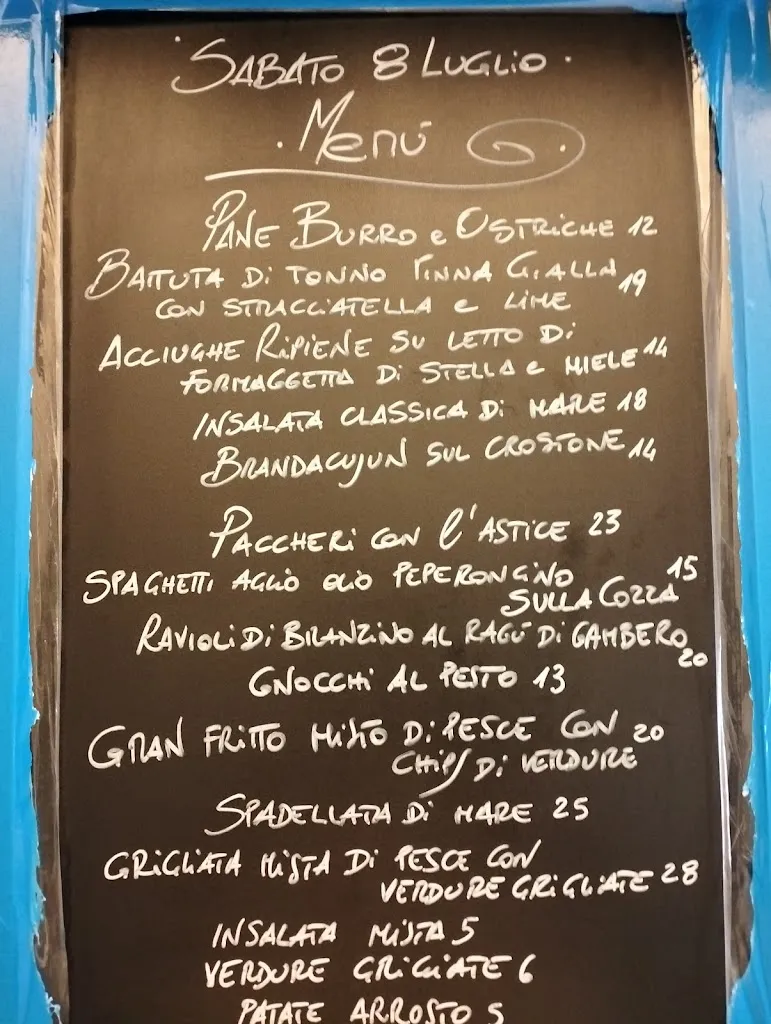 SABATO 8 LUGLIO
Menú
PANE BURRO e OSTRICHE 12
BATTUTA Di TONNO PINNA GIALLA 19
CON STRACCIATELLA e LIME
ACCIUGHE RiPIENE SU LETTO Di
FORMAGGETTA Di STELLA e MIELE 14
INSALATA CLASSICA Di MARE 18
BRANDACUJUN SUL CROSTONE 14
PACCHERi CON l'ASTICE 23
SPAGHETTI AGLIO OLIO PEPERONCINO 15
SULLA COZZA
RAVIOLI DI BRANZINO AL RAGÚ Di GAMBERO
20
GNOCCHi AL PESTO 13
GRAN FRITTO MISTO Di PESCE CON 20
CHIPS Di VERDURE
SPADELLATA Di MARE 25
GRIGLIATA MISTA Di PESCE CON
VERDURE GRIGLIATE 28
INSALATA MISTA 5
VERDURE GRIGLIATE 6
PATATE ARROSTO 5